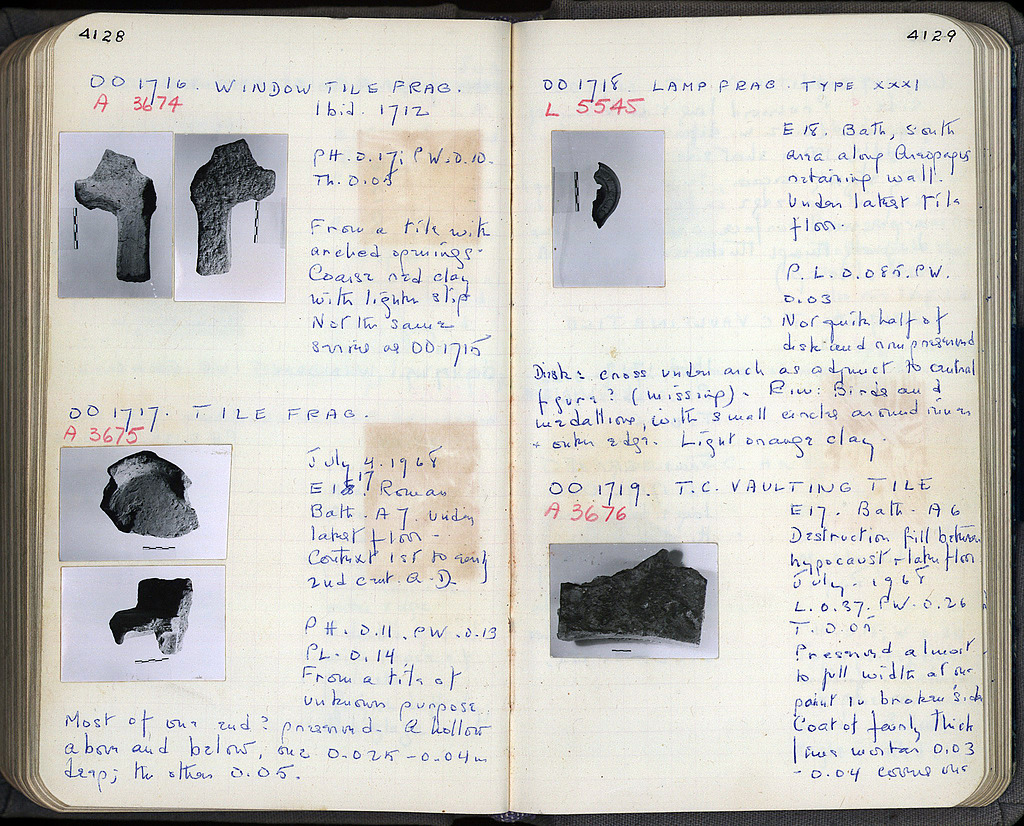 4128
OO 1716. WINDOW TILE FRAG.
A 3674
Ibid. 1712
PH. 0.17; PW. 0.10.
Th. 0.05
From a tile with
arched openings.
Coarse red clay
with lighter slip
Not the same
series as OO 1715
OO 1717. TILE FRAG.
A 3675
July 4. 1968
E 17. Roman
Bath. A 7. Under
latest floor -
Context 1st to early
2nd cent. A.D.
PH. 0.11. PW. 0.13
PL. 0.14
From a tile of
unknown purpose.
Most of one end? preserved. A hollow
above and below, one 0.025 - 0.04 m
deep; the other 0.05.
4129
OO 1718. LAMP FRAG. TYPE XXXI
L 5545
E 18. Bath, south
area along Areopagus
retaining wall.
Under latest tile
floor.
P. L. 0.085. PW.
0.03
Not quite half of
disk and rim preserved
Disk: cross under arch as adjunct to central
figure? (missing). Rim: Birds and
medallions, with small circles around inner
+ outer edge. Light orange clay.
OO 1719. T.C. VAULTING TILE
A 3676
E 17. Bath. A 6
Destruction fill between
hypocaust + later floor
July - 1968
L. 0.37. PW. 0.26
T. 0.05.
Preserved almost
to full width at one
point in broken side
Coat of fairly thick
lime mortar 0.03
- 0.04 covers one